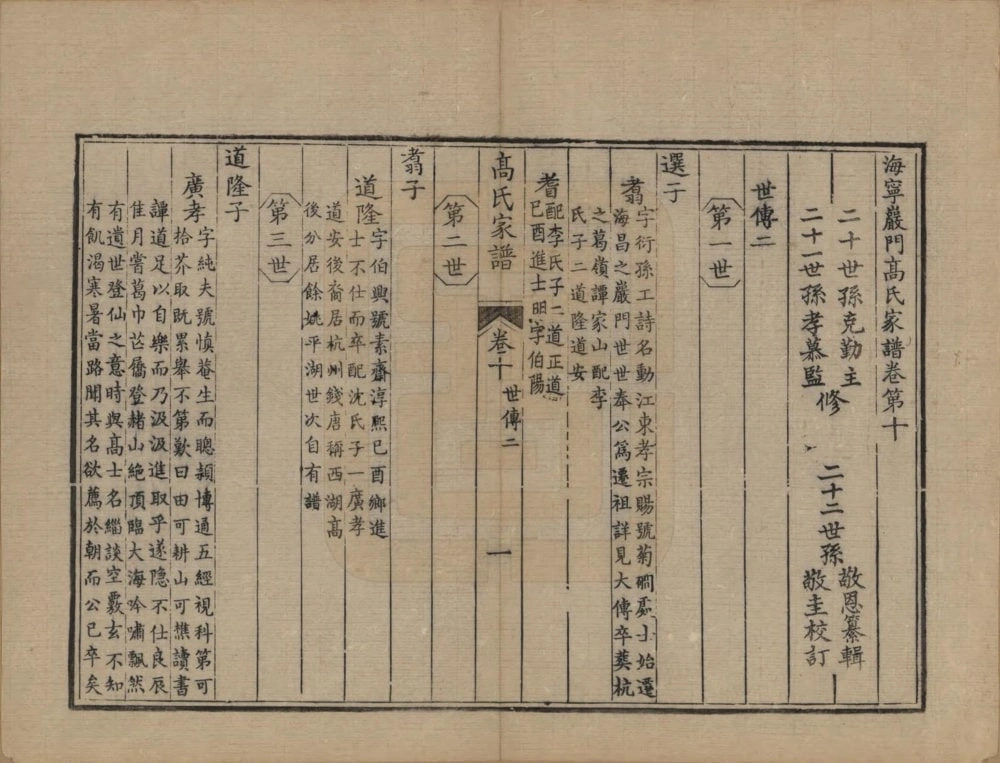 海寧巖門高氏家譜卷第十
二十世孫克勤主
二十一世孫孝慕監
修
二十二世孫
敬恩纂輯
敬圭校訂
世傳二
第一世
選子
翥
字衍孫工詩名動江東孝宗賜號菊磵處士始遷
海昌之巖門世世奉公為遷祖詳見大傳卒葬杭
之葛嶺譚家山配李
氏子二道隆道安
耆
配李氏子二道正道
巳酉進士
字伯陽
高氏家譜
卷十
世傳二
一
第二世
翥子
道隆
字伯興號素齋淳熙巳酉鄉進
士不仕而卒配沈氏子一廣孝
道安後裔居杭州錢唐稱西湖高
後分居餘姚平湖世次自有譜
第三世
道隆子
廣孝
字純夫號慎菴生而聰穎博通五經視科第可
拾芥取既累舉不第歎曰由可耕山可樵讀書
譚道足以自樂而乃汲汲進取乎遂隱不仕良辰
佳月嘗葛巾芒屩登赭山絶頂臨大海吟嘯飄然
有遺世登仙之意時與高士名緇談空覈玄不知
有飢渴寒暑當路聞其名欲薦於朝而公已卒矣